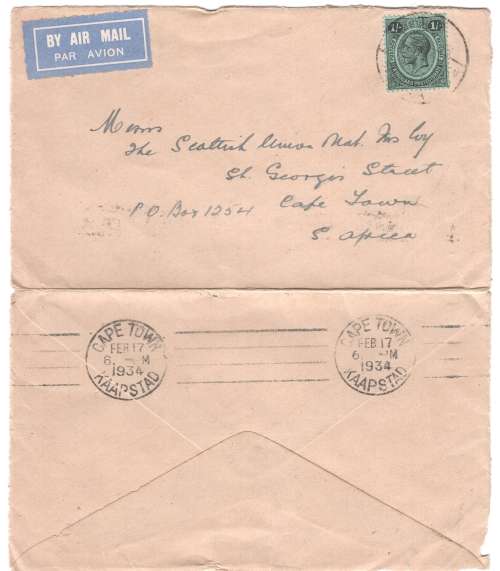 BY AIR MAIL
PAR AVION
1/- 1/-
Messrs
The Scottish Union Nat. Ins Coy
St. Georges Street
P.O. Box 1254 Cape Town
S. Africa
CAPE TOWN
FEB 17
6 M
1934
KAAPSTAD
CAPE TOWN
FEB 17
6 M
1934
KAAPSTAD